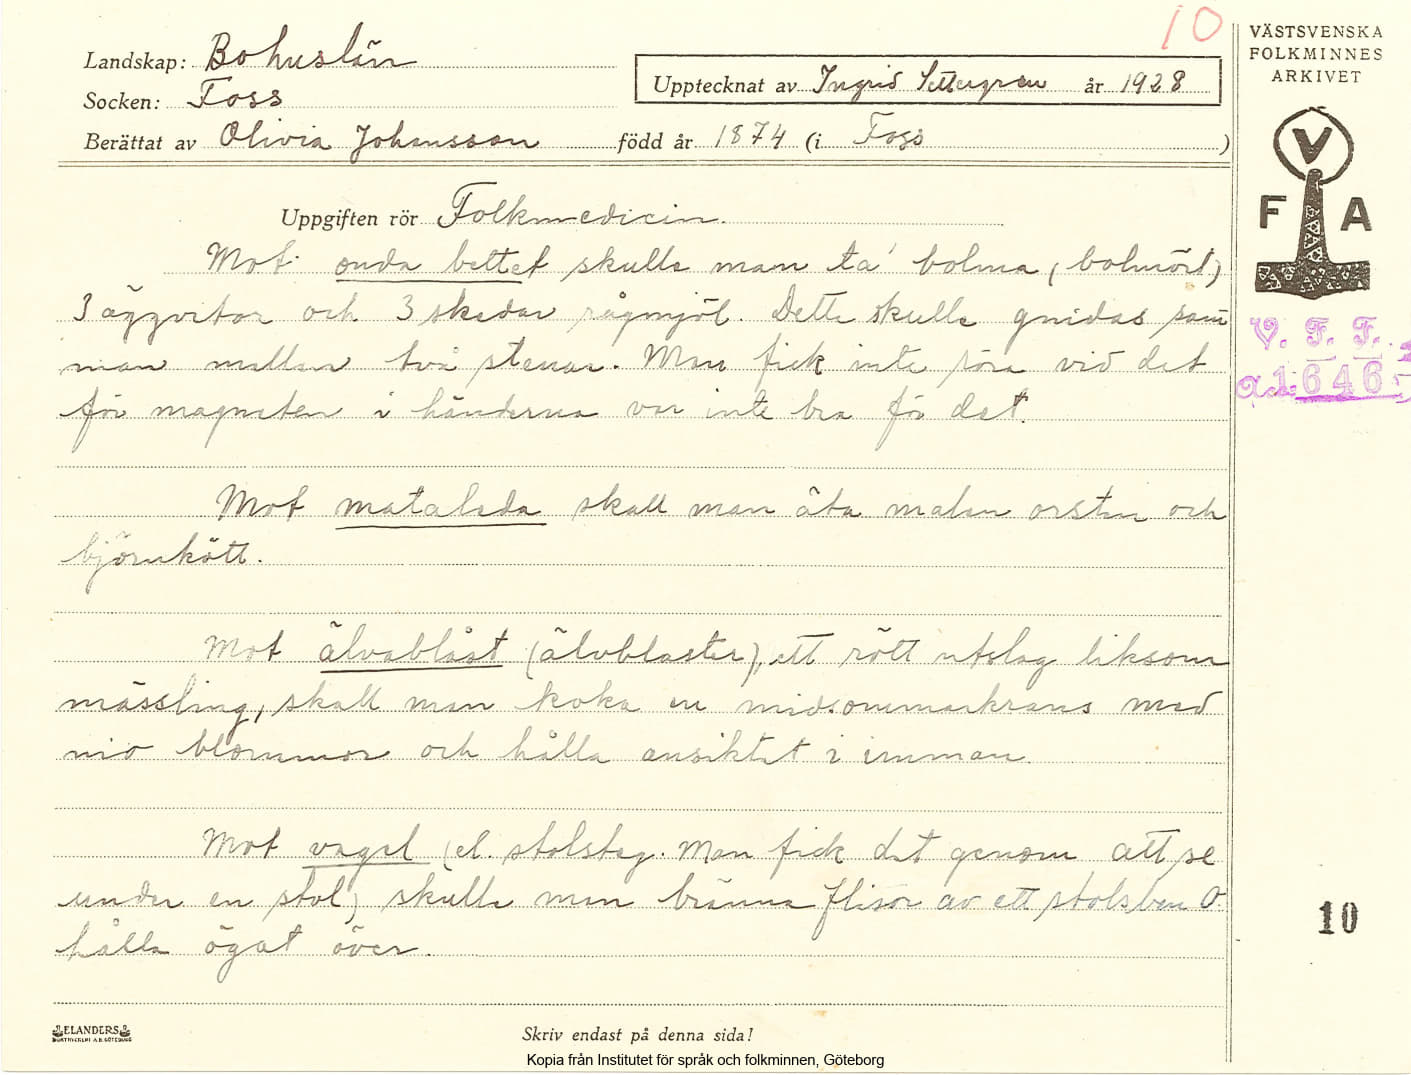 10
VÄSTSVENSKA
FOLKMINNES
ARKIVET
Landskap: Bohuslän
Socken: Foss
Upptecknat av Ingrid Settergren år 1928
Berättat av Olivia Johansson född år 1874 (i Foss)
V
F A
Uppgiften rör Folkmedicin.
Mot onda bettet skulle man ta' bolma (bolmört)
3 äggvitor och 3 skedar rågmjöl. Detta skulle gnidas sam
man mellan två stenar. Man fick inte röra vid det
för magneten i händerna var inte bra för det.
V. F. F.
a.: 1646:
Mot mataleda skall man äta malen orsten och
björnkött.
Mot älvablåst (älvblaster), ett rött utslag liksom
mässling, skall man koka en midsommarkrans med
nio blommor och hålla ansiktet i imman.
Mot vagel (el. stolsteg. Man fick det genom att se
under en stol) skulle man bränna flisor av ett stolsben o.
hålla ögat över.
10
ELANDERS
BOKTRYCKERI A.B. GÖTEBORG
Skriv endast på denna sida!
Kopia från Institutet för språk och folkminnen, Göteborg